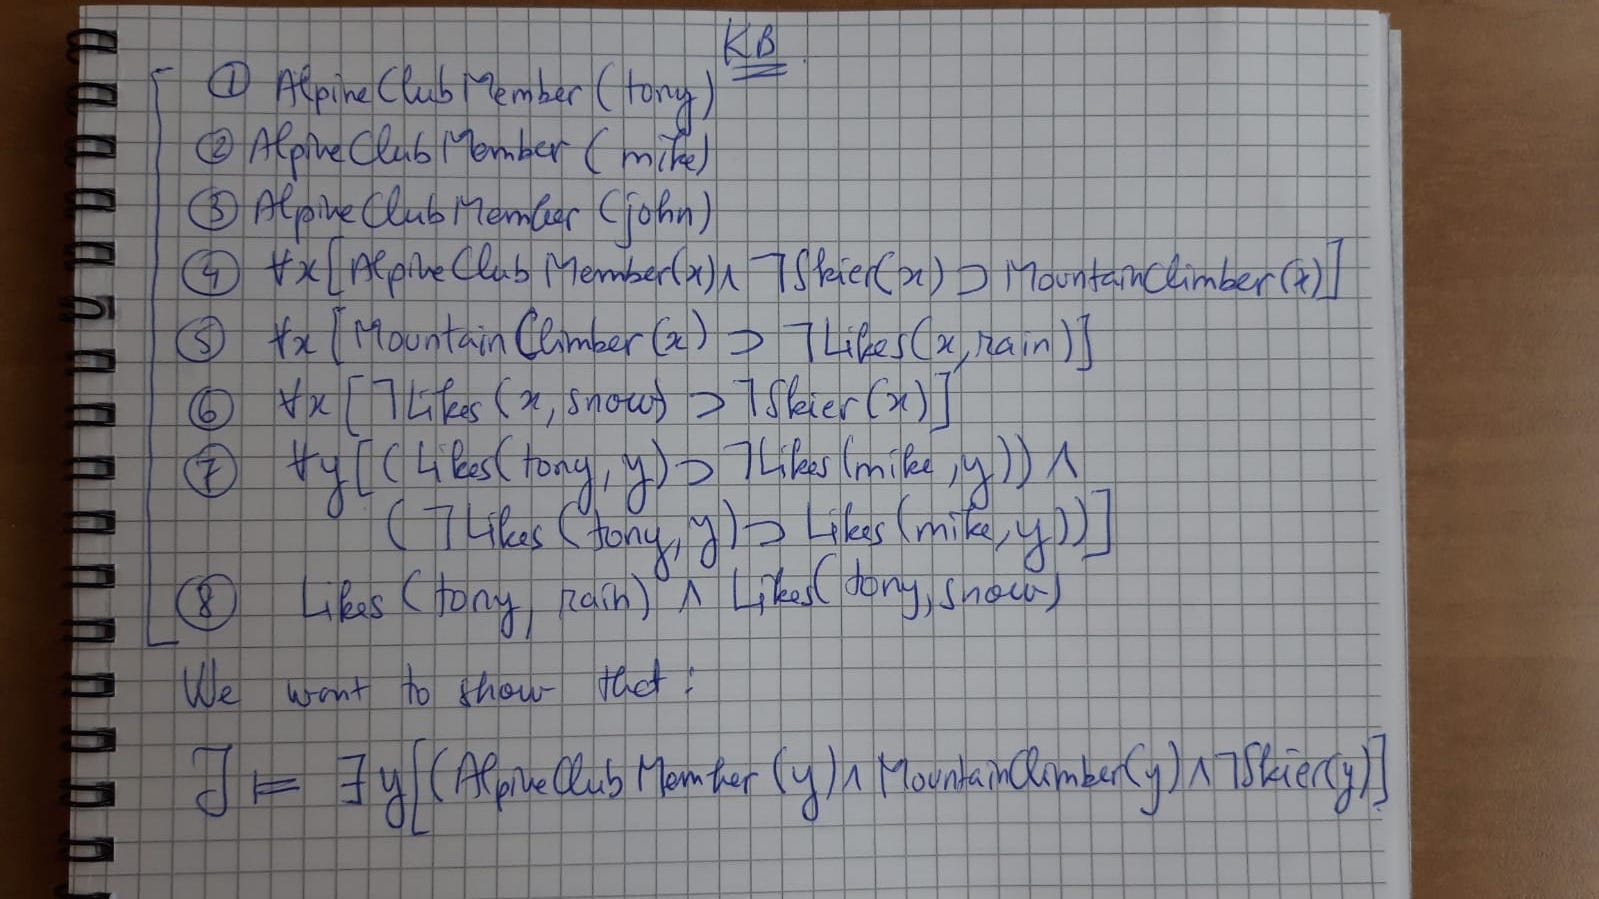 KB
① AlpineClubMember(tony)
② AlpineClubMember(mike)
③ AlpineClubMember(john)
④ ∀x[AlpineClubMember(x) ∧ ¬Skier(x) ⊃ MountainClimber(x)]
⑤ ∀x[MountainClimber(x) ⊃ ¬Likes(x, rain)]
⑥ ∀x[¬Likes(x, snow) ⊃ ¬Skier(x)]
⑦ ∀y[(Likes(tony, y) ⊃ ¬Likes(mike, y)) ∧
(¬Likes(tony, y) ⊃ Likes(mike, y))]
⑧ Likes(tony, rain) ∧ Likes(tony, snow)
We want to show that:
ℑ ⊨ ∃y[(AlpineClubMember(y) ∧ MountainClimber(y) ∧ ¬Skier(y)]